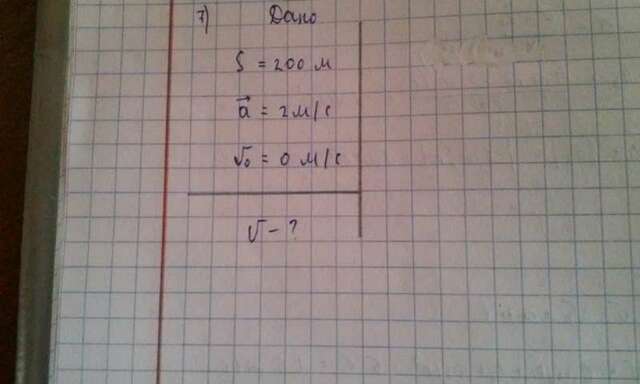 7) Дано
S = 200 м
a⃗ = 2 м/с
v₀ = 0 м/с
v - ?